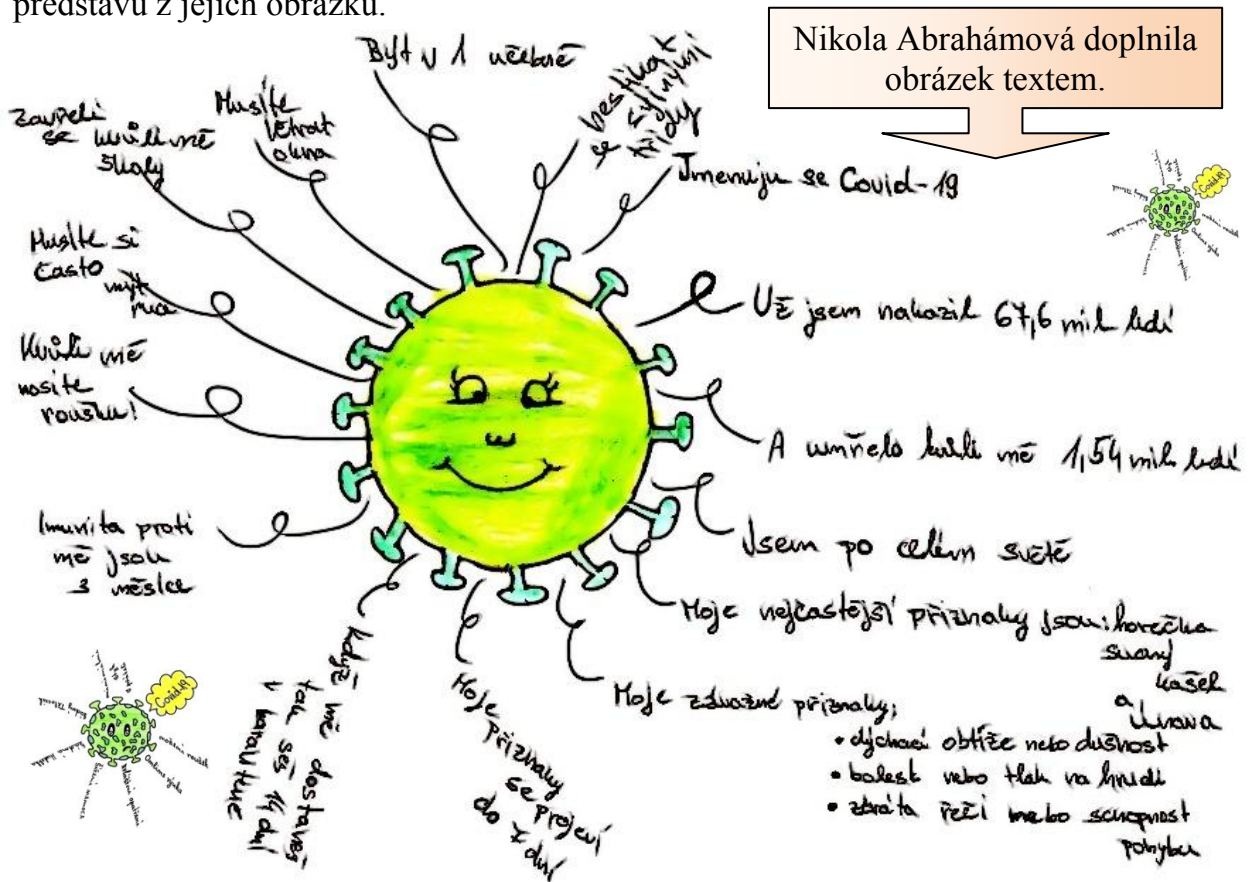 představu z jejich obrázku.
Nikola Abrahámová doplnila
obrázek textem.
Být v 1 učebně
nestýkat
se s jinými
třídy
Jmenuju se Covid-19
Už jsem nakazil 67,6 mil lidí
A umřelo kvůli mě 1,54 mil lidí
Jsem po celém světě
Moje nejčastější příznaky jsou: horečka
suchý
kašel
a
únava
Moje závažné příznaky:
• dýchací obtíže nebo dušnost
• bolest nebo tlak na hrudi
• ztráta řeči nebo schopnost
pohybu
Moje
příznaky
se projeví
do 7 dní
když mě dostaneš
tak seš 14 dní
v karanténě
Imunita proti
mě jsou
3 měsíce
Kvůli mě
nosíte
roušku!
Musíte si
často
mýt
ruce
Zavřeli
se kvůli mě
školy
Musíte
větrat
okna
Covid19
Covid19